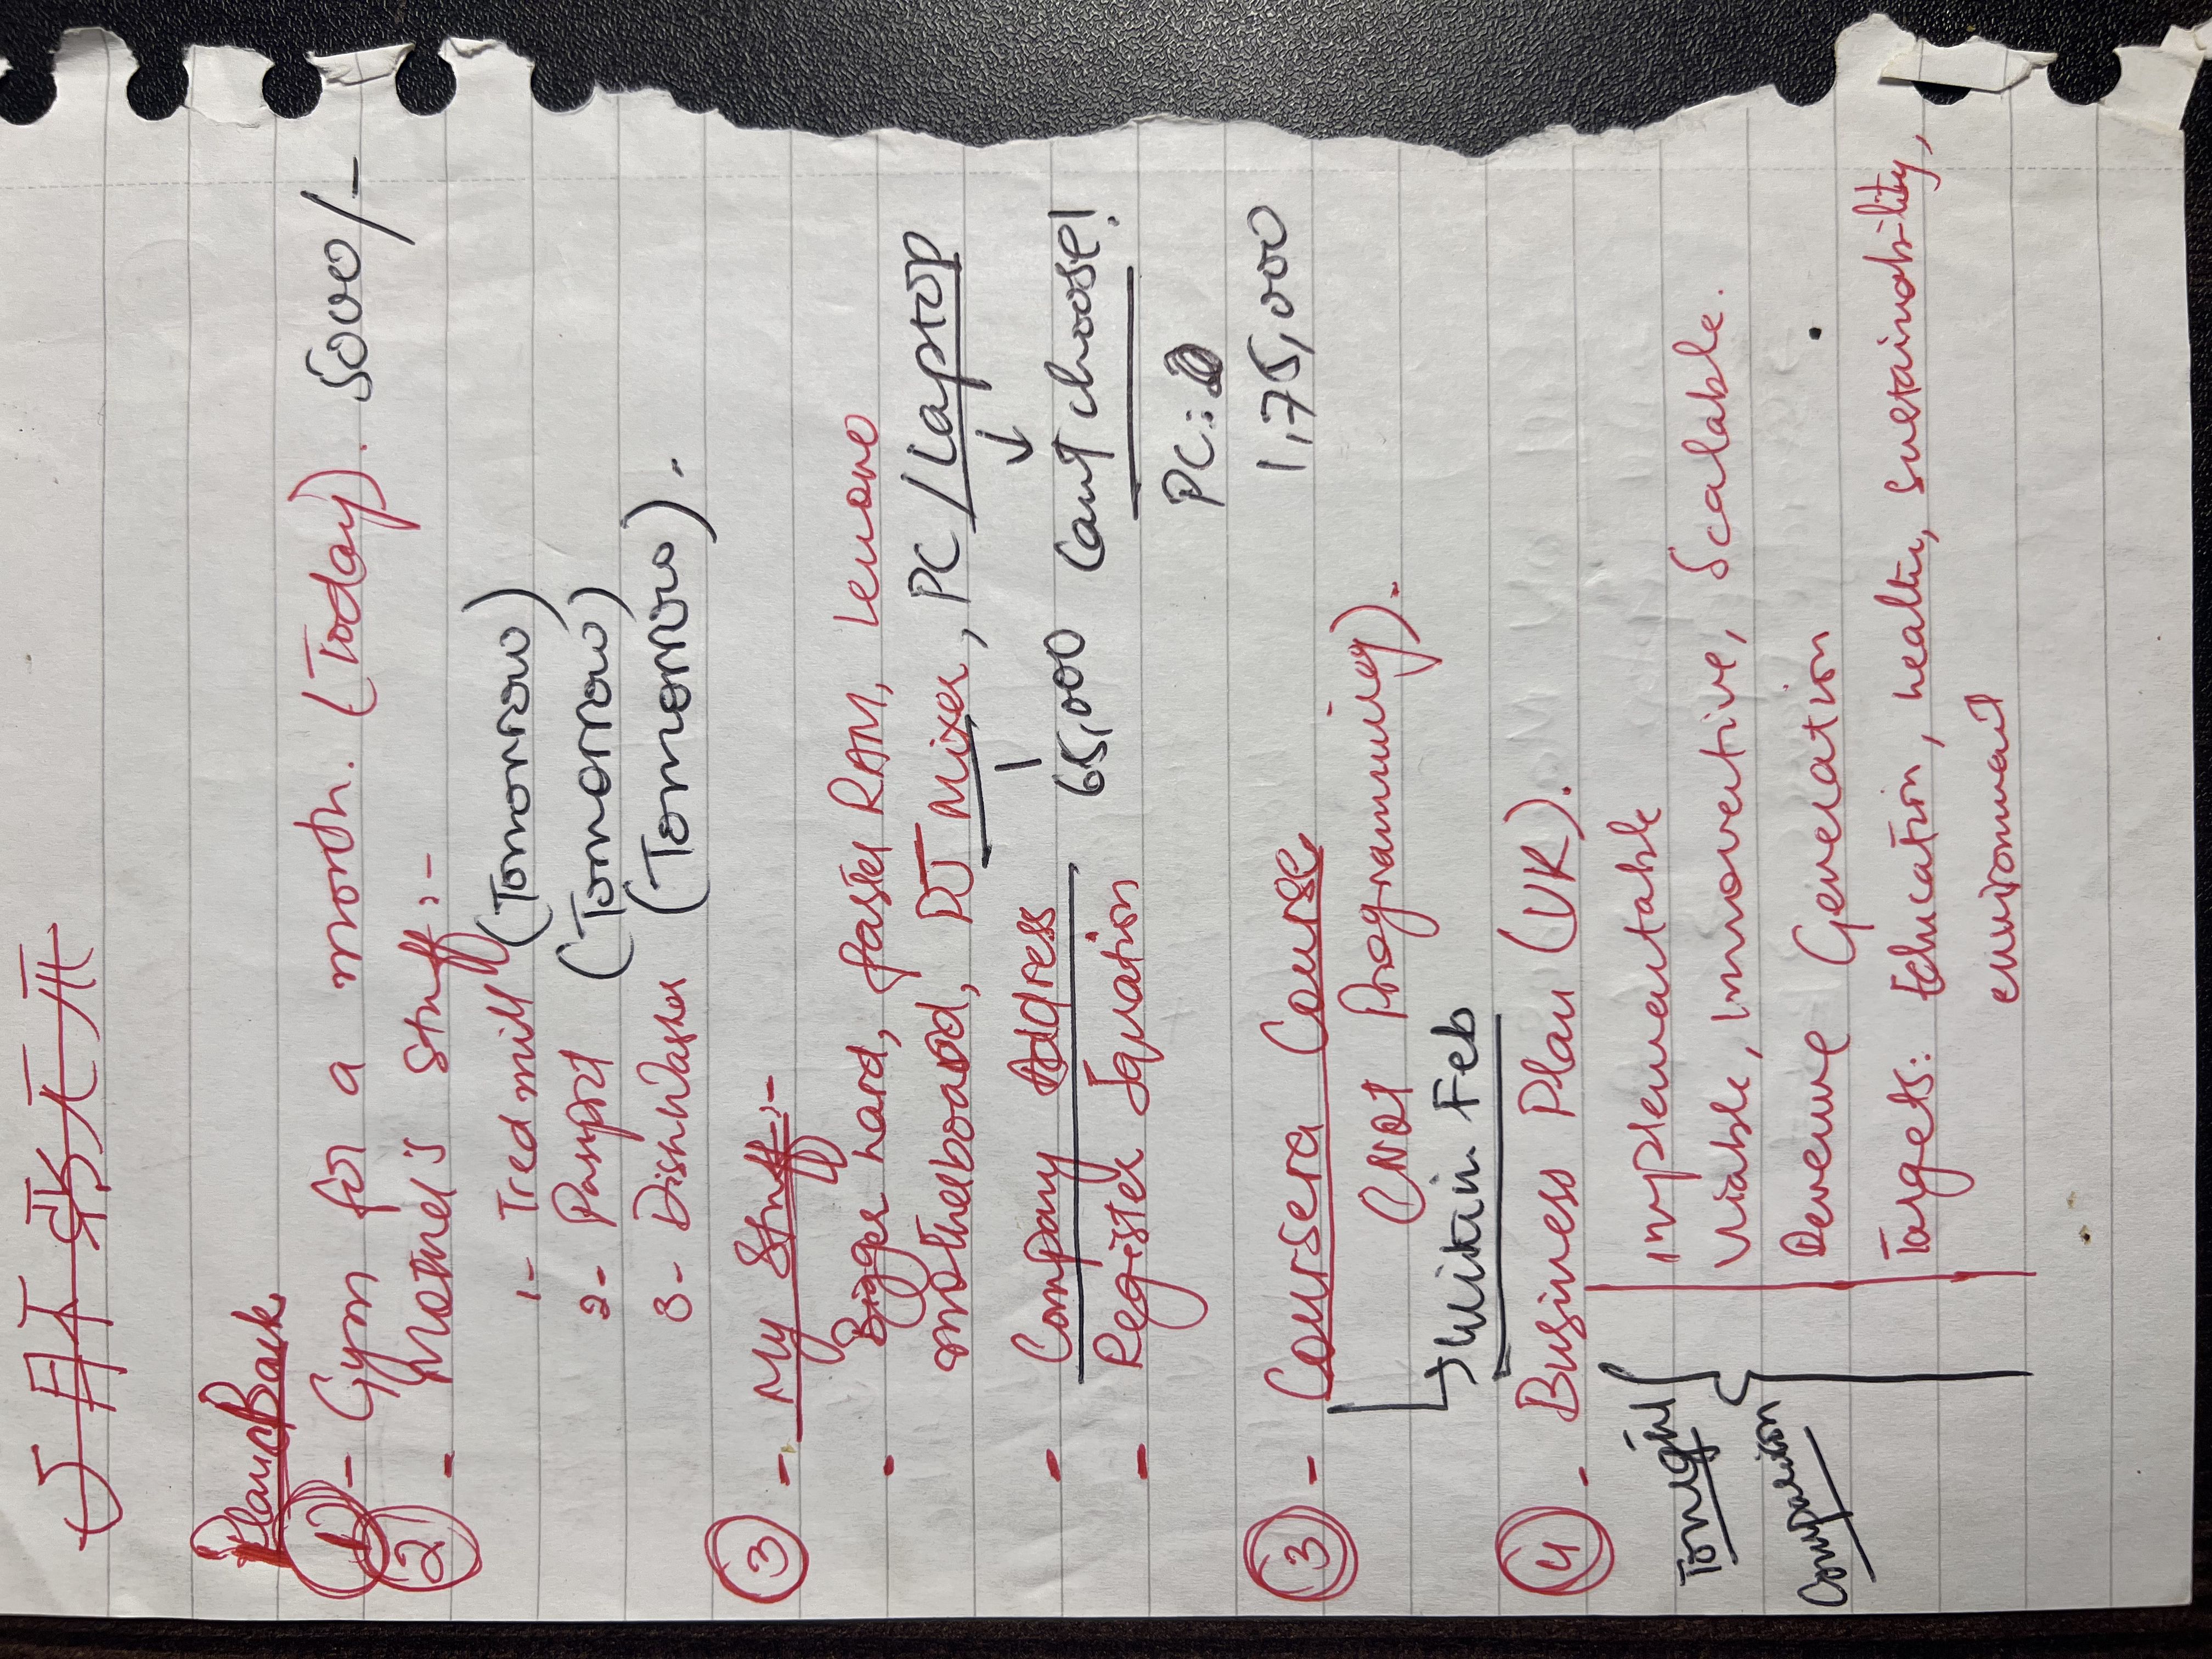 PlanBack
① - Gym for a month. (Today). 5000/-
② - Mother's stuff :-
1- Tredmill (Tomorrow)
2- Passport (Tomorrow)
3- Dishwasher (Tomorrow).
③ - My Stuff:-
Bigger hard, faster RAM, Lenovo
motherboard, DJ Mixer, PC/Laptop
65,000 Cant choose!
Company Address
PC:
Register
1,75,000
③ - Coursera Course
(Not Programming).
Within Feb
④ - Business Plan (UK).
Tonight
Implementable
Viable, Innovative, Scalable.
Comparison
Revenue Generation
Targets: Education, health, sustainability,
environment